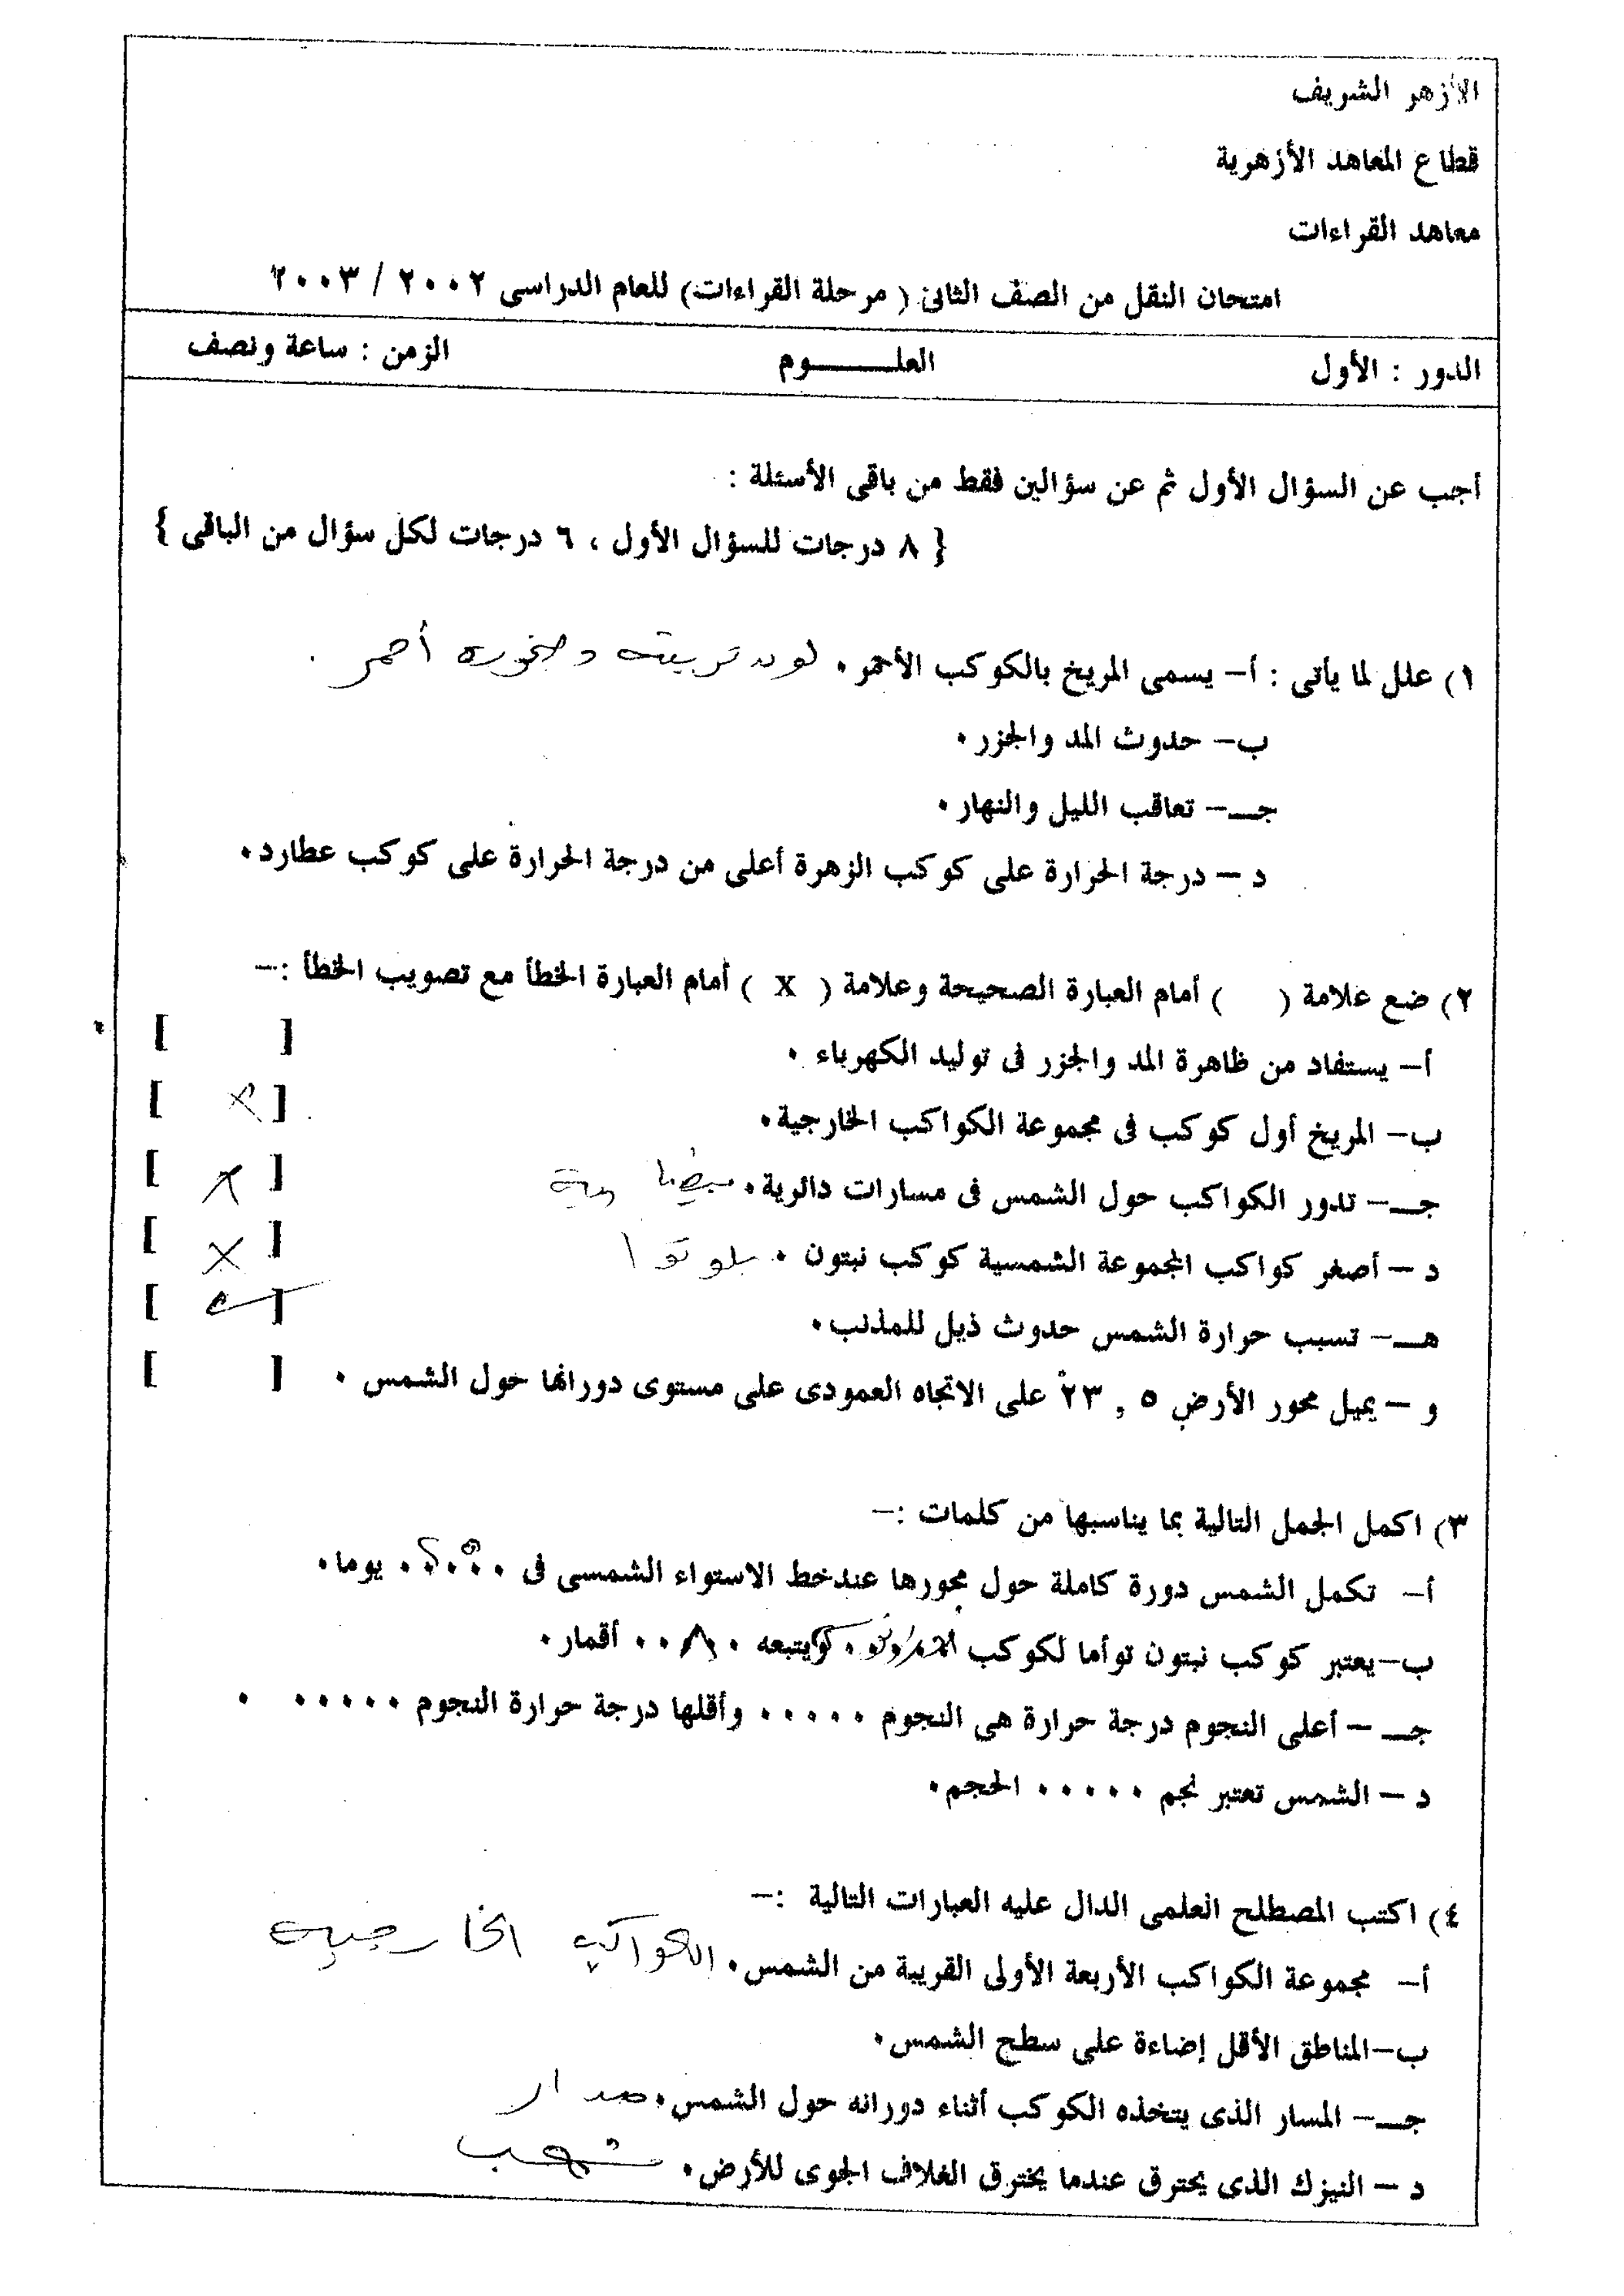 الأزهر الشريف
قطاع المعاهد الأزهرية
معاهد القراءات
امتحان النقل من الصف الثانى ( مرحلة القراءات ) للعام الدراسى ٢٠٠٢ / ٢٠٠٣
الدور : الأول العلـــــــوم الزمن : ساعة ونصف
أجب عن السؤال الأول ثم عن سؤالين فقط من باقى الأسئلة :
{ ٨ درجات للسؤال الأول ، ٦ درجات لكل سؤال من الباقى }
١) علل لما يأتى : أ– يسمى المريخ بالكوكب الأحمر. لون تربيته وصخوره أحمر .
ب– حدوث المد والجزر.
جـــ– تعاقب الليل والنهار.
د – درجة الحرارة على كوكب الزهرة أعلى من درجة الحرارة على كوكب عطارد.
٢) ضع علامة ( ) أمام العبارة الصحيحة وعلامة ( X ) أمام العبارة الخطأ مع تصويب الخطأ :–
أ– يستفاد من ظاهرة المد والجزر فى توليد الكهرباء . [ ]
ب– المريخ أول كوكب فى مجموعة الكواكب الخارجية. [ X ]
جـــ– تدور الكواكب حول الشمس فى مسارات دائرية. بيضاوية [ X ]
د – أصغر كواكب المجموعة الشمسية كوكب نبتون . بلوتوا [ X ]
هـــ– تسبب حرارة الشمس حدوث ذيل للمذنب. [ ✓ ]
و – يميل محور الأرض ٥ , ٢٣° على الاتجاه العمودى على مستوى دورانها حول الشمس . [ ]
٣) اكمل الجمل التالية بما يناسبها من كلمات :–
أ– تكمل الشمس دورة كاملة حول محورها عندخط الاستواء الشمسى فى ٠٠٠٠٠ يوما.
ب–يعتبر كوكب نبتون توأما لكوكب ٠٠٠٠٠ ويتبعه ٠٠٨٠٠ أقمار.
جـــ – أعلى النجوم درجة حرارة هى النجوم ٠٠٠٠٠ وأقلها درجة حرارة النجوم ٠٠٠٠٠ .
د – الشمس تعتبر نجم ٠٠٠٠٠ الحجم.
٤) اكتب المصطلح العلمى الدال عليه العبارات التالية :–
أ– مجموعة الكواكب الأربعة الأولى القريبة من الشمس. الكواكب الخارجية
ب–المناطق الأقل إضاءة على سطح الشمس.
جـــ– المسار الذى يتخذه الكوكب أثناء دورانه حول الشمس. مدار
د – النيزك الذى يحترق عندما يخترق الغلاف الجوى للأرض. شهب